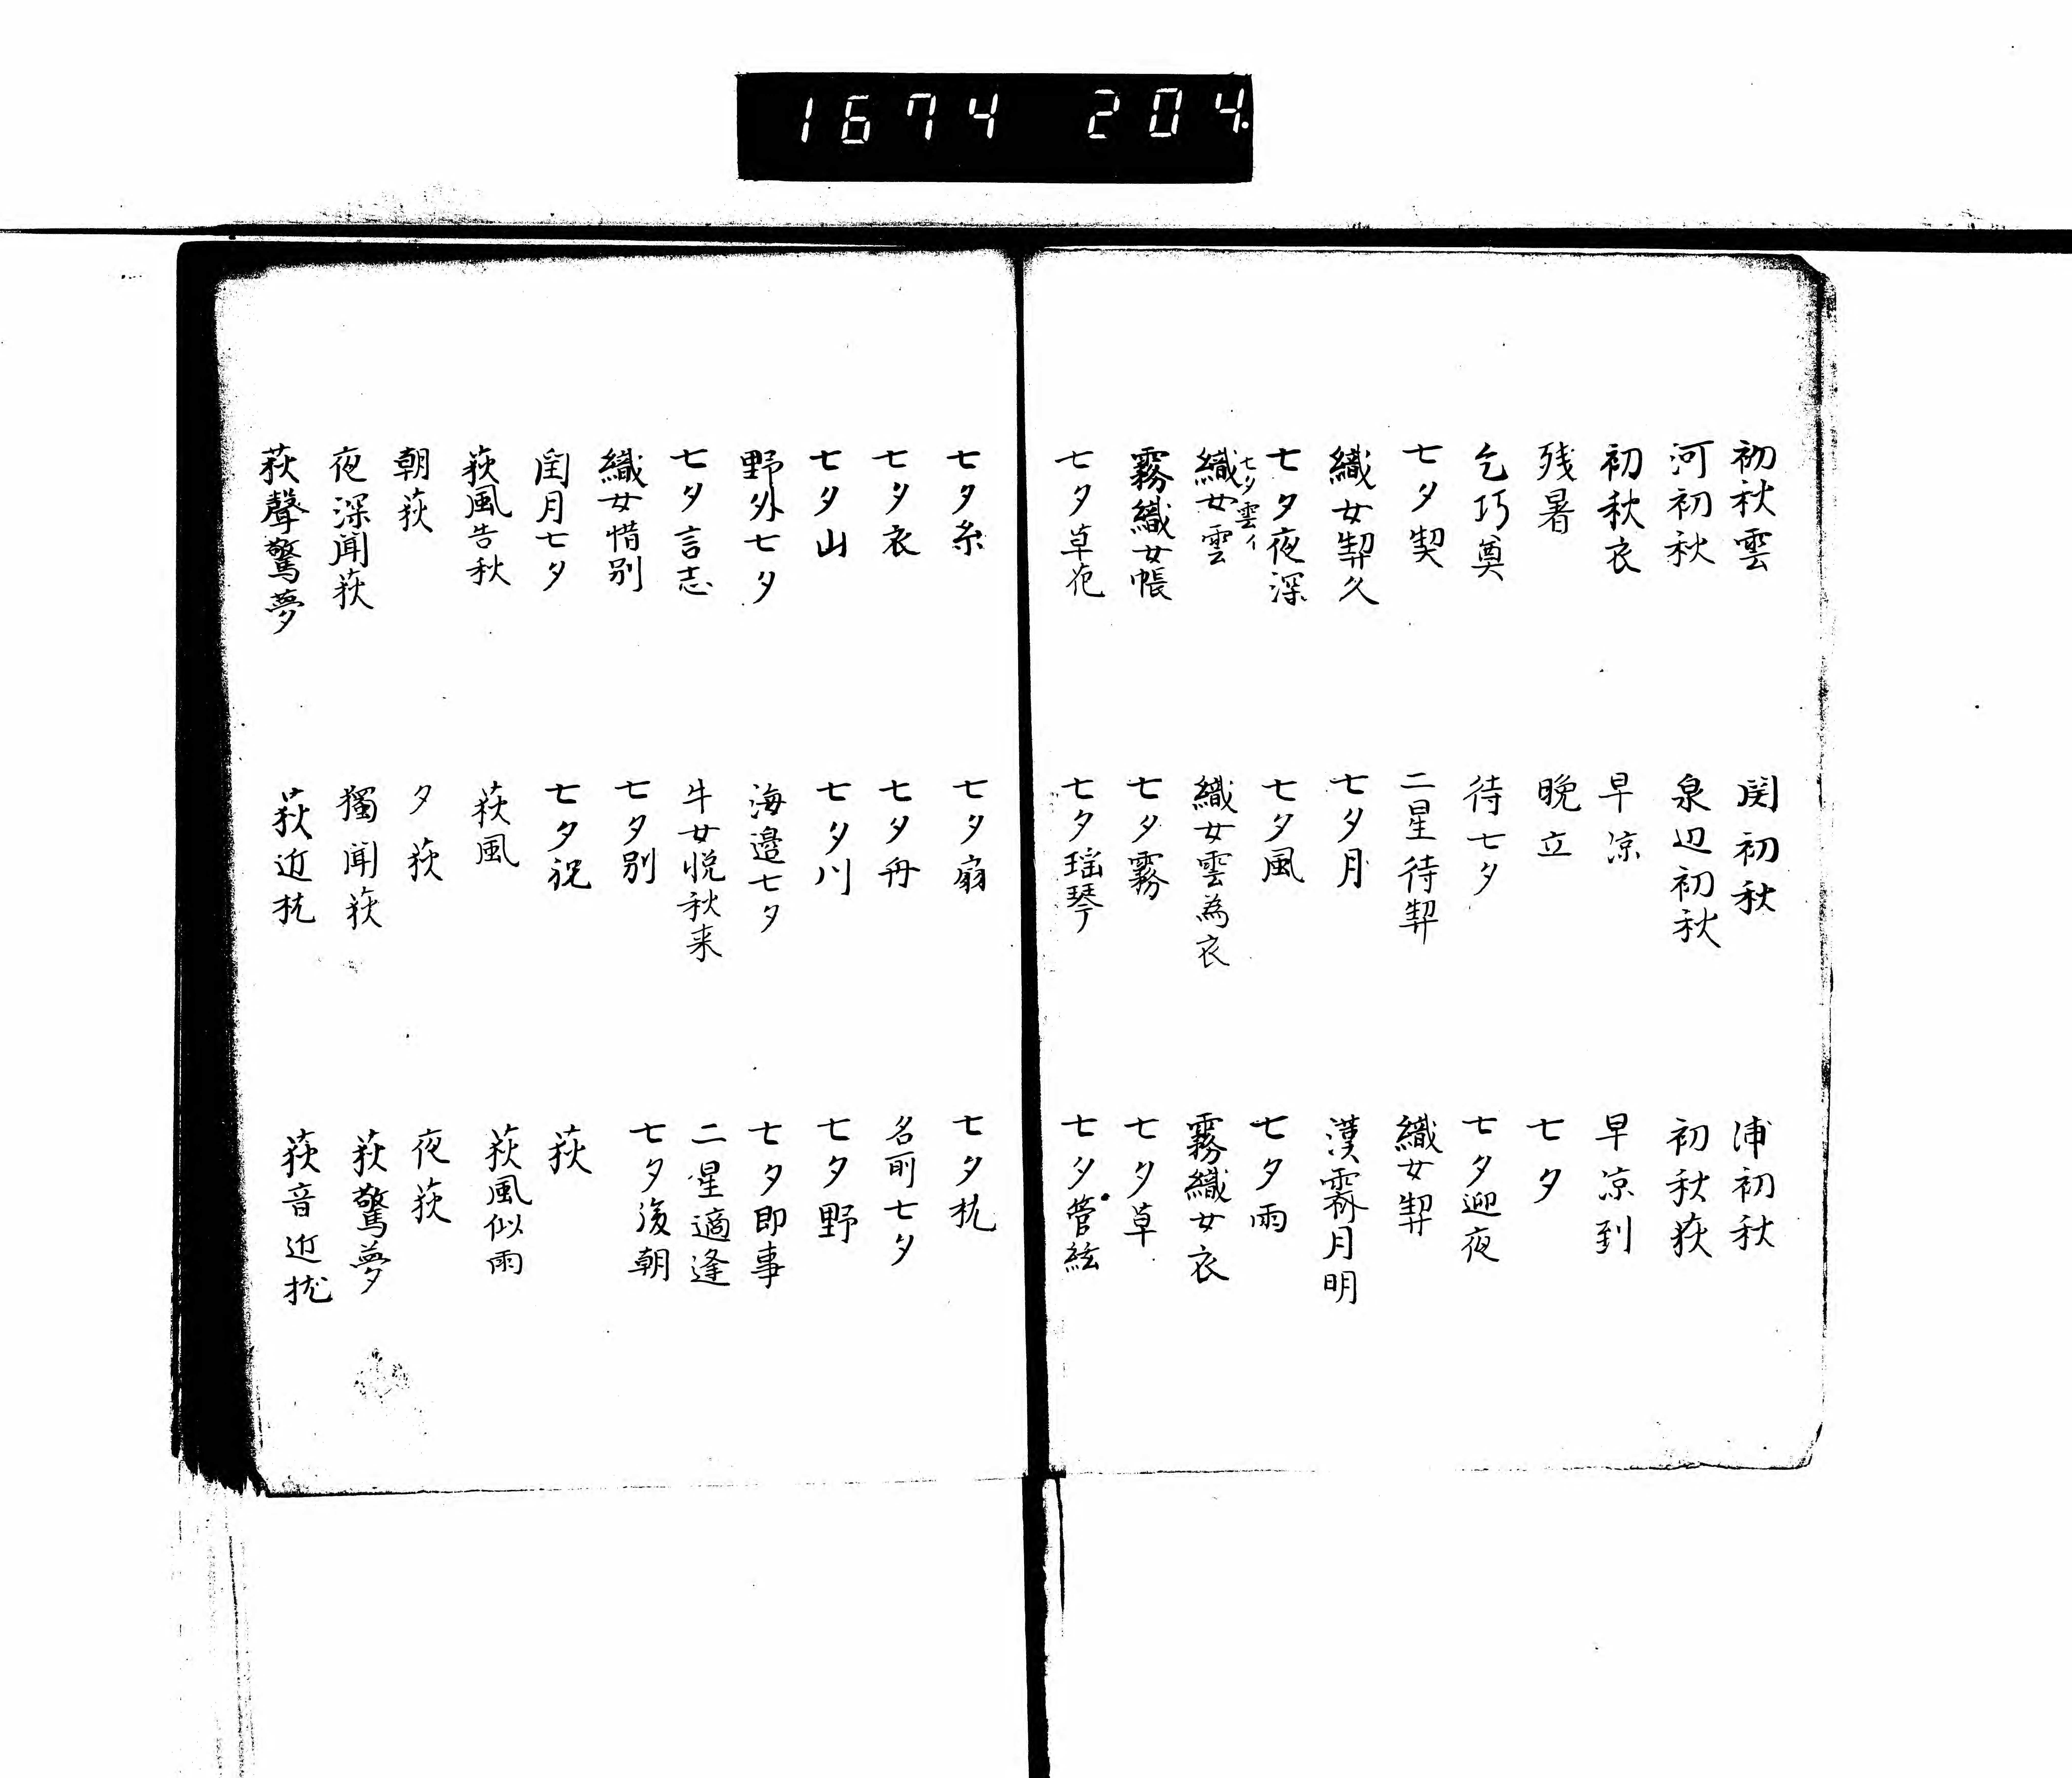 1674 204.
初秋雲 関初秋 浦初秋
河初秋 泉辺初秋 初秋荻
初秋衣 早凉 早凉到
残暑 晩立 七夕
乞巧奠 待七夕 七夕迎夜
七夕契 二星待契 織女契
織女契久 七夕月 漢霽月明
七夕夜深 七夕風 七夕雨
七夕雲イ
織女雲 織女雲為衣 霧織女衣
霧織女帳 七夕霧 七夕草
七夕草花 七夕瑶琴 七夕管絃
七夕糸 七夕扇 七夕枕
七夕衣 七夕舟 名所七夕
七夕山 七夕川 七夕野
野外七夕 海邉七夕 七夕即事
七夕言志 牛女悦秋来 二星適逢
織女惜别 七夕别 七夕後朝
閏月七夕 七夕祝 荻
荻風告秋 荻風 荻風似雨
朝荻 夕荻 夜荻
夜深聞荻 獨聞荻 荻驚夢
荻聲驚夢 荻近枕 荻音近枕